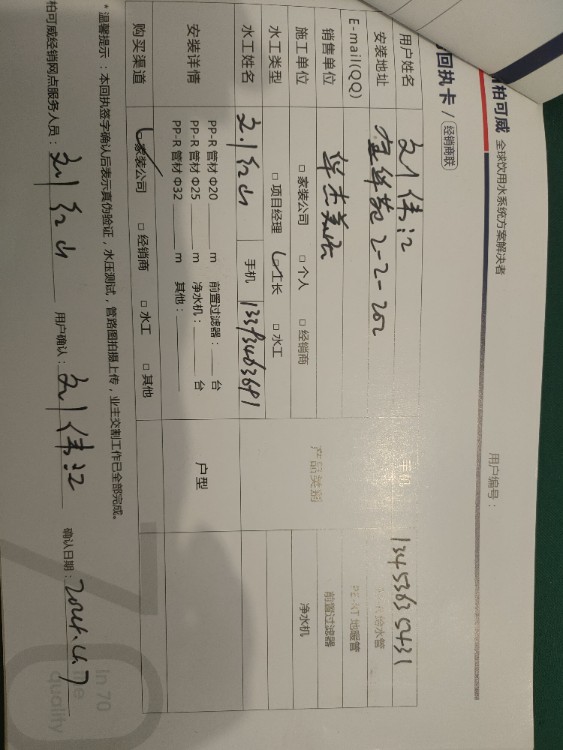 柏可威 全球饮用水系统方案解决者
回执卡 / 经销商联
用户编号：
用户姓名 刘伟江 手机
安装地址 金华苑 2-2-202 给水管
E-mail(QQ) PE-RT 地暖管
销售单位 产品类别 前置过滤器
施工单位 □ 家装公司 □ 个人 □ 经销商 净水机
水工类型 □ 项目经理 工长 □ 水工
水工姓名 刘红山 手机
安装详情 PP-R 管材 Φ20 m 前置过滤器： 台 户型
PP-R 管材 Φ25 m 净水机： 台
PP-R 管材 Φ32 m 其他：
购买渠道 家装公司 □ 经销商 □ 水工 □ 其他
*温馨提示：本回执签字确认后表示真伪验证，水压测试，管路图拍摄上传，业主交割工作已全部完成。
柏可威经销网点服务人员：刘红山 用户确认：刘伟江 确认日期：
In 70
quality